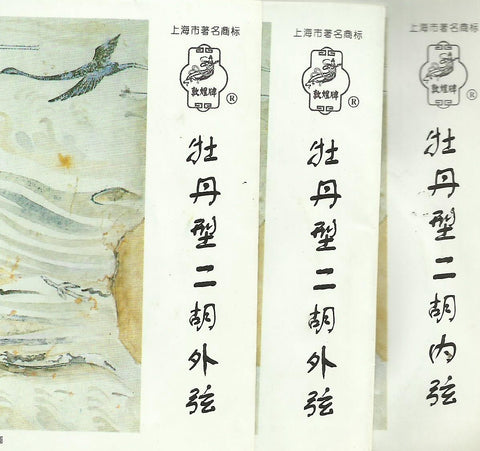 上海市著名商标
敦煌牌
®
牡丹型二胡外弦
上海市著名商标
敦煌牌
®
牡丹型二胡外弦
上海市著名商标
敦煌牌
®
牡丹型二胡内弦